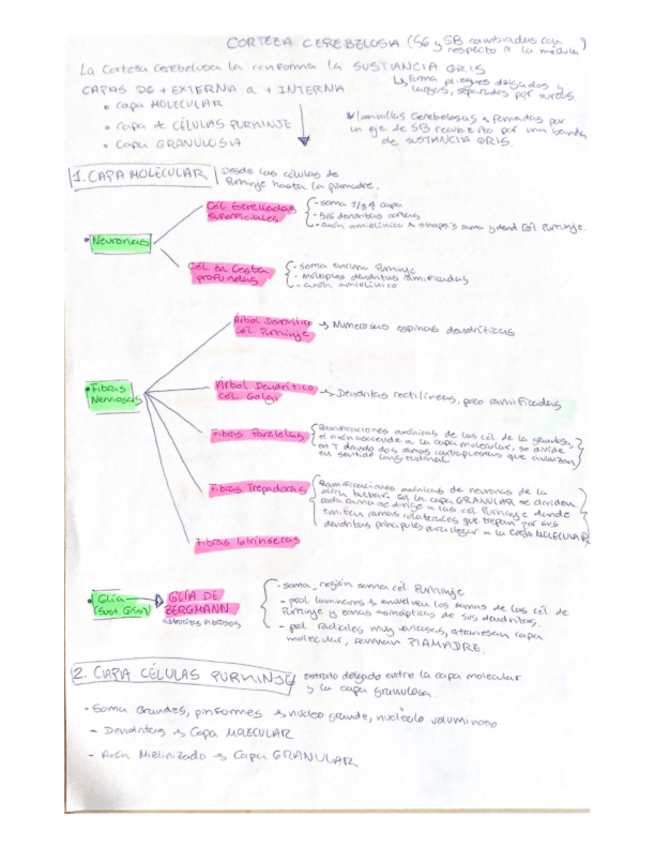 CORTEZA CEREBELOSA (SG y SB cambiadas con respecto a la médula)
La Corteza Cerebelosa la conforma la SUSTANCIA GRIS
↳ forma pliegues delgados y largos, separados por surcos.
CAPAS DE + EXTERNA a + INTERNA
• Capa MOLECULAR
• Capa de CÉLULAS PURKINJE
• Capa GRANULOSA
laminillas cerebelosas → formadas
por un eje de SB recubierto por una banda
de SUSTANCIA GRIS.
1. CAPA MOLECULAR
Desde las células de
Purkinje hasta la piamadre.
• Neuronas
Cél Estrelladas
superficiales
- soma 2/3 capa
- 5/6 dendritas
- axón amielínico → sinapsis soma y dend Cél Purkinje.
Cél en Cesta
profundas
- soma encima Purkinje
- múltiples dendritas ramificadas
- axón amielínico
• Fibras
Nerviosas
Árbol Dendrítico
cél. Purkinje
→ Numerosas espinas dendríticas
Árbol Dendrítico
cél Golgi
→ Dendritas rectilíneas, poco ramificadas
Fibras Paralelas
Ramificaciones axónicas de las cél de la granulosa,
el axón asciende a la capa molecular, se divide
en T dando dos ramas contrapuestas que avanzan
en sentido longitudinal.
Fibras Trepadoras
Ramificaciones axónicas de neuronas de la
oliva bulbar. En la capa GRANULAR se dividen,
cada rama se dirige a las cél Purkinje donde
emiten ramas colaterales que trepan por sus
dendritas principales para llegar a la CAPA MOLECULAR
Fibras Intrínsecas
• Glía
(Sust Gris)
GLÍA DE
BERGMANN
astrocitos fibrosos
- soma → región soma cél Purkinje
- prol laminares → envuelven los somas de las cél. de
Purkinje y zonas asinápticas de sus dendritas.
- prol radiales muy, atraviesan capa
molecular, forman PIAMADRE.
2. CAPA CÉLULAS PURKINJE
estrato delgado entre la capa molecular
y la capa granulosa.
- Soma Grandes, piriformes → núcleo grande, nucleolo voluminoso
- Dendritas → Capa MOLECULAR
- Axón Mielinizado → Capa GRANULAR